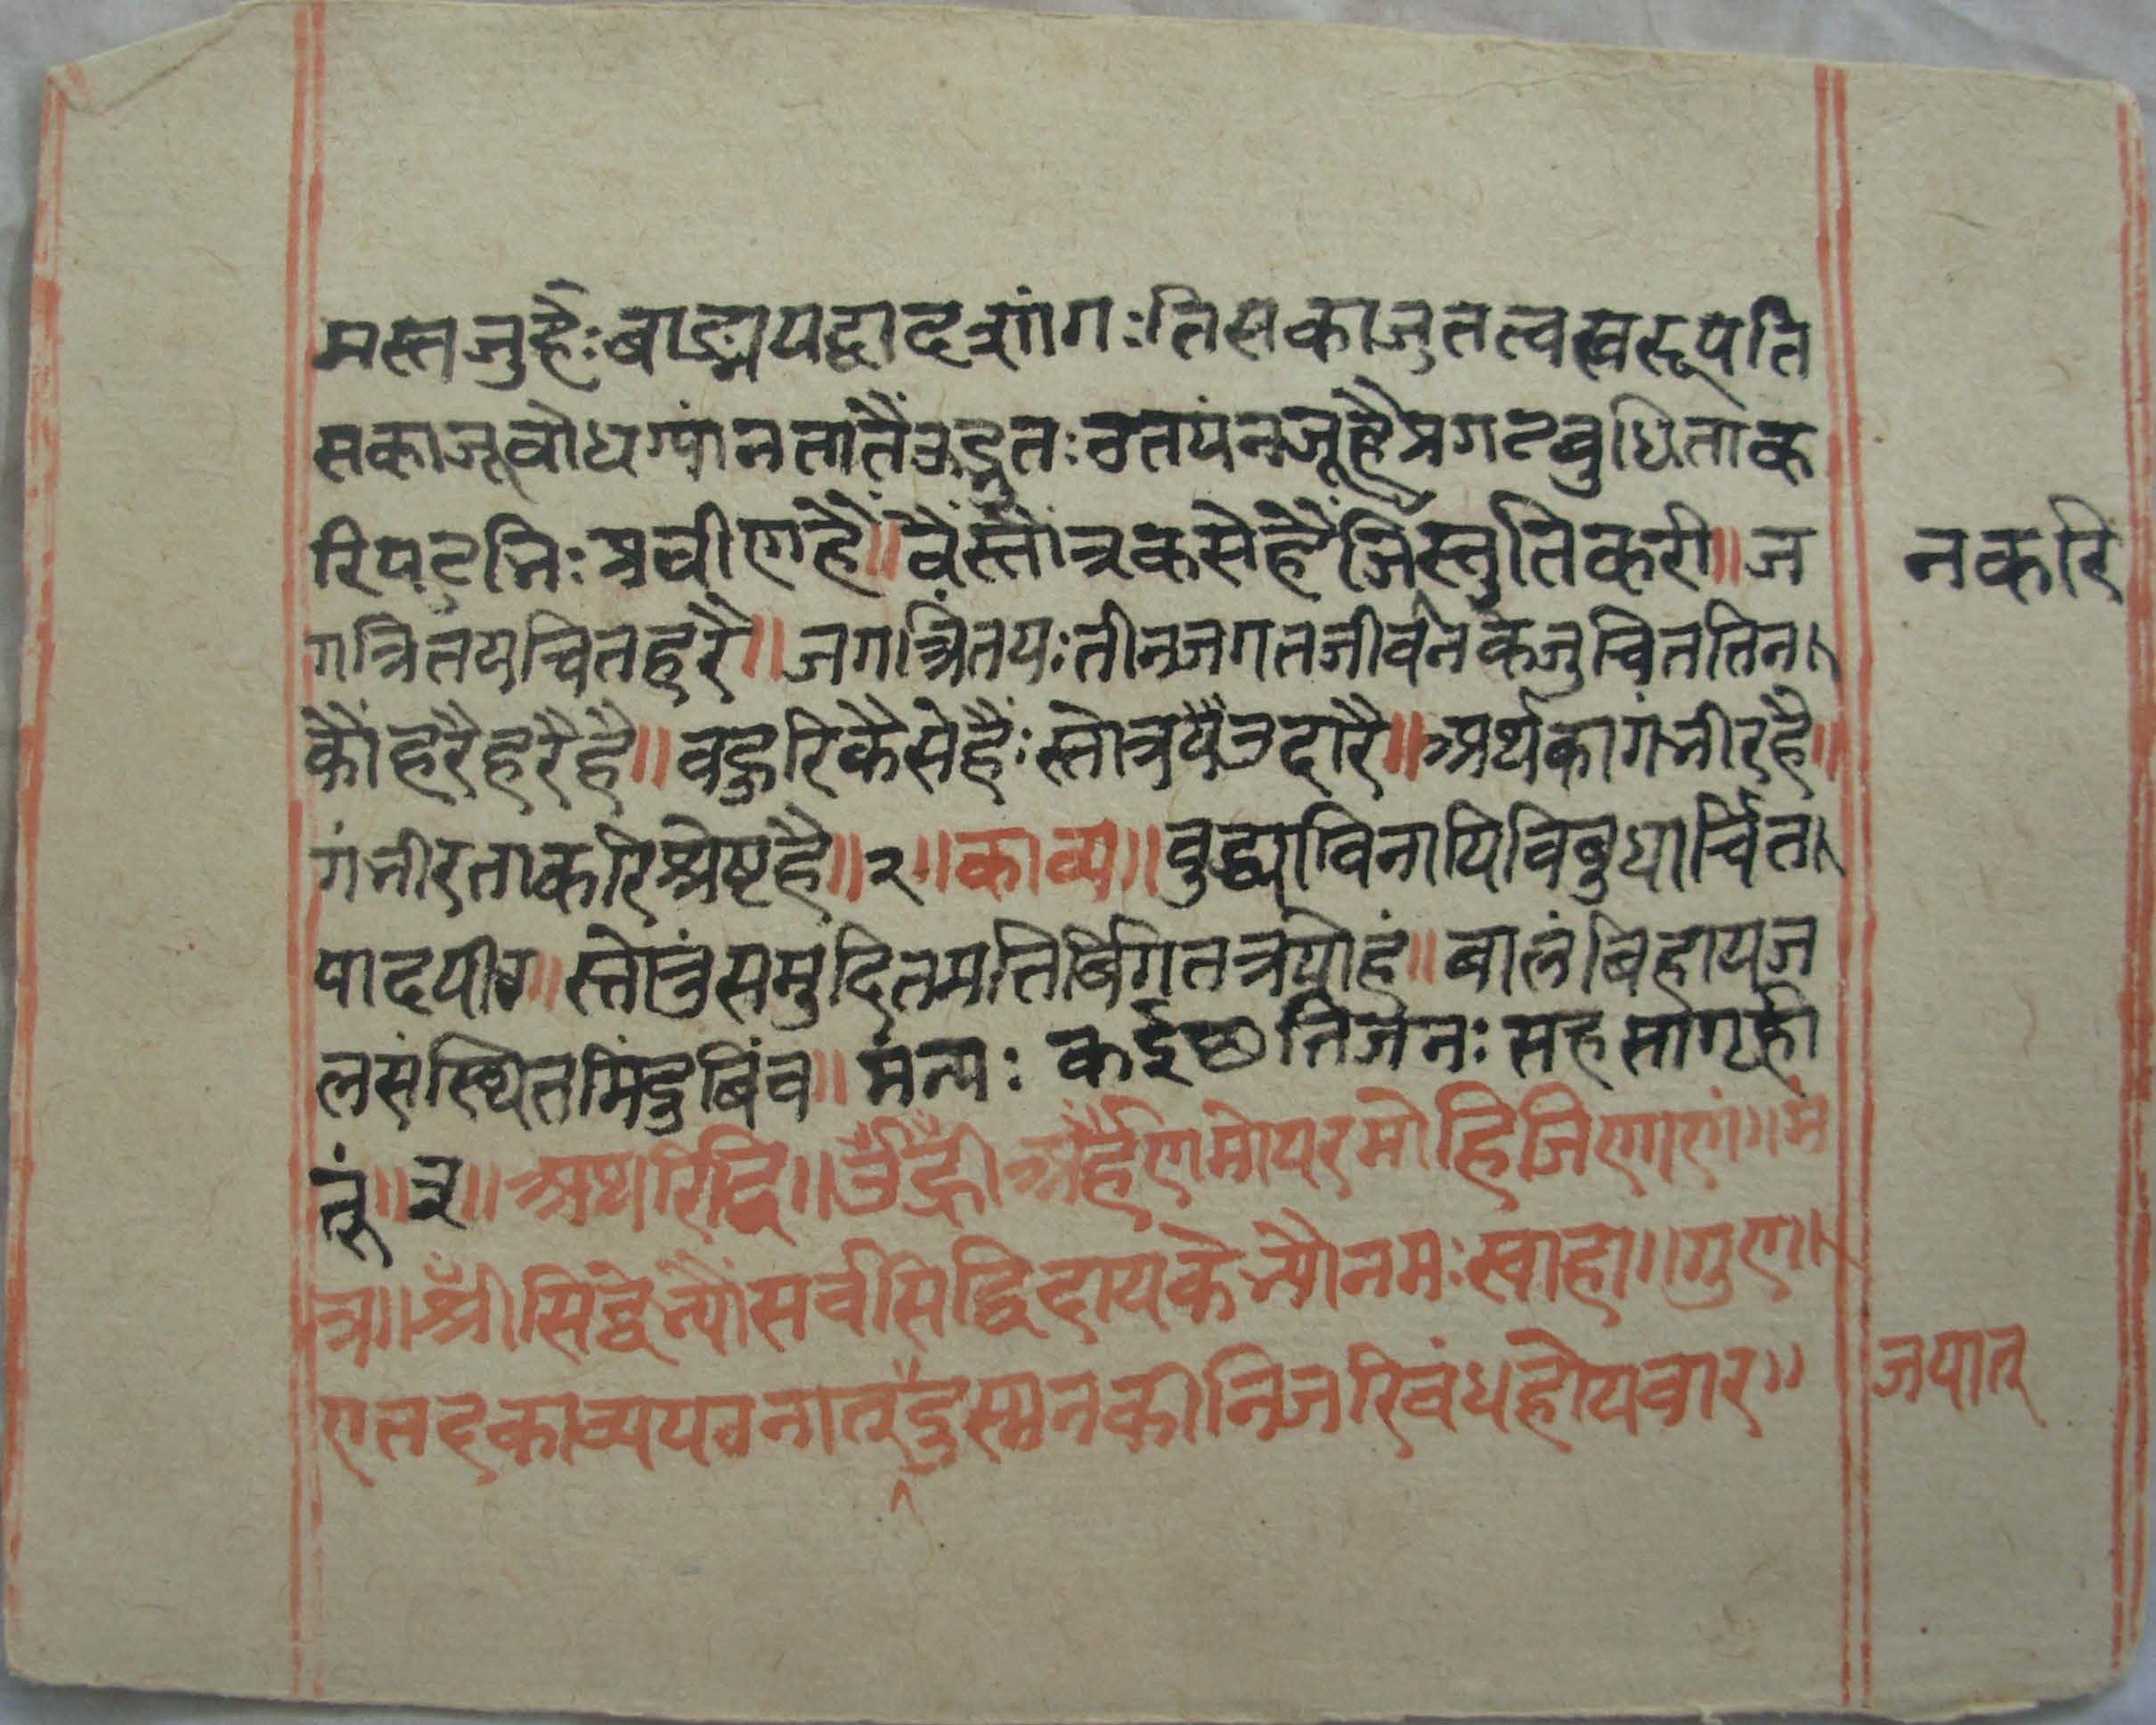 मस्तजुहैः बाङ्मयद्वादशांगः तिसकाजुतत्वस्वरूपति
सकाजूबोधग्यांनतातैंउद्भूतः उतपंनजूहैप्रगटबुधिताक
रिपटुभिः प्रवीणहैं॥ वैंस्तोत्रकसेहैंजिंस्तुतिकरी॥ ज
नकरि
गत्रितयचितहरै॥ जगत्त्रितयः तीनजगतजीवनकेजुचिततिन।
कौंहरैहरैहै॥ बहुरिकैसेहैंः स्तोत्रयैउदारै॥ अर्थकागंभीरहै॥
गंभीरताकरिश्रेष्टहै॥ २॥ काव्य॥ बुद्ध्याविनापिविबुधार्चित।
पादपीठ॥ स्तोत्तुंसमुदितमतिर्बिगतत्रयोहं॥ बालंबिहायज
लसंस्थितमिंदुबिंब॥ मंन्यः कईछतिजनः सहसागृही
तूं॥ ३॥ अथरिद्धि॥ उँह्रीअर्हंणमोपरमोहिजिणाणं॥ मं
त्र॥ श्रीँसिद्धेभ्यौसर्वसिद्धिदायकेभ्यौनमः स्वाहा॥ गुण॥
एतहकाव्यपठनातूदुस्मनकीनिजरिबंधहोयबार॥
जपात्